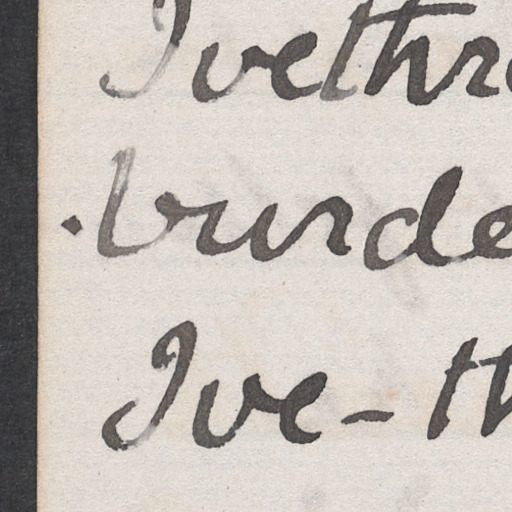 Ivethr
.burde
Ive-th